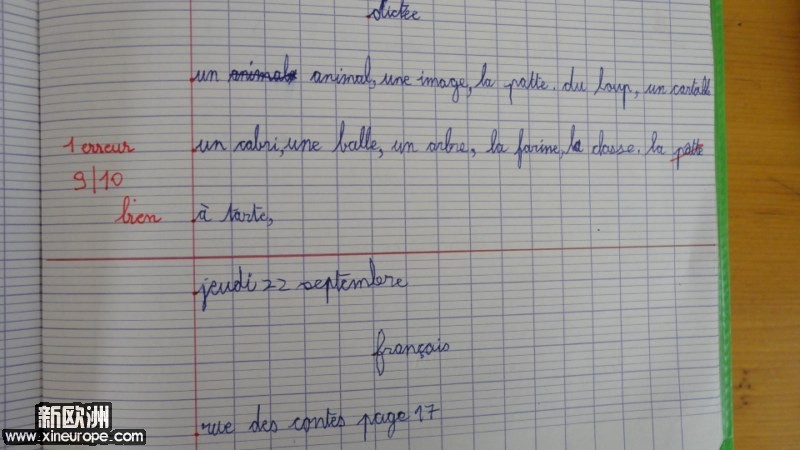 dictée
un animal animal, une image, la patte. du loup, un cartable
1 erreur un cabri, une balle, un arbre, la farine, la classe. la patte
9/10
bien à tarte,
jeudi 22 septembre
français
rue des contes page 17
新欧洲
www.xineurope.com